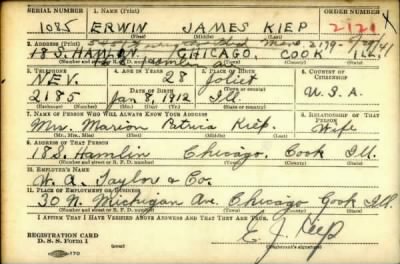 SERIAL NUMBER 1. NAME (Print) ORDER NUMBER
1085 ERWIN JAMES KIEP 2121 X
(First) (Middle) (Last)
2. ADDRESS (Print)
18 S. HAMLIN CHICAGO, COOK ILL.
(Number and street or R. F. D. number) (Town) (County) (State)
3. TELEPHONE 4. AGE IN YEARS 5. PLACE OF BIRTH 6. COUNTRY OF CITIZENSHIP
NEV. 28 Joliet
2185 DATE OF BIRTH Ill. U.S.A.
Jan 8, 1912
(Exchange) (Number) (Mo.) (Day) (Yr.) (State or country)
7. NAME OF PERSON WHO WILL ALWAYS KNOW YOUR ADDRESS 8. RELATIONSHIP OF THAT PERSON
Mrs. Marion Patricia Kiep. Wife
(Mr., Mrs., Miss) (First) (Middle) (Last)
9. ADDRESS OF THAT PERSON
18 S. Hamlin Chicago, Cook Ill.
(Number and street or R. F. D. number) (Town) (County) (State)
10. EMPLOYER'S NAME
W. A. Taylor & Co.
11. PLACE OF EMPLOYMENT OR BUSINESS
30 N. Michigan Ave. Chicago Cook Ill.
(Number and street or R. F. D. number) (Town) (County) (State)
I AFFIRM THAT I HAVE VERIFIED ABOVE ANSWERS AND THAT THEY ARE TRUE.
REGISTRATION CARD
D. S. S. Form 1
E. J. Kiep
(Registrant's signature)